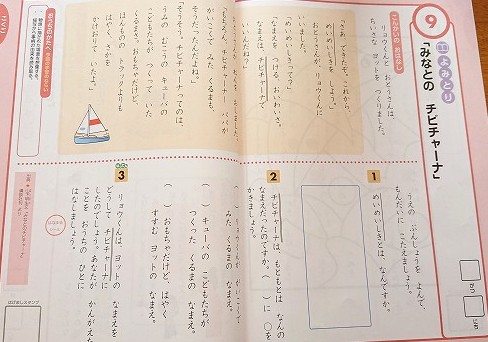 9
よみとり
「みなとの チビチャーナ」
がつ
にち
こんかいの おはなし
リョウくんと おとうさんは、
ちいさな ヨットを つくりました。
「さあ、できたぞ。これから、
めいめいしきを しよう。」
おとうさんが、リョウくんに
いいました。
「めいめいしきって?」
「なまえを つける、おいわいさ。
なまえは、チビチャーナで
いいんだね?」
チビチャーナ、パパが
くるまも、
そうだったんだよね。」
「そうそう。チビチャーナってのは
うみの むこうの キューバの
こどもたちが つくって いた
くるまさ。おもちゃだけど、
ほんものの トラックよりも
はやく、さかを
かけおりて いたよ。」
おうちのかたへ
うえの ぶんしょうを よんで、
もんだいに こたえましょう。
1
めいめいしきとは、なんですか。
2
チビチャーナは、もともとは なんの
なまえだったのですか。( )に ○を
かきましょう。
みた くるまの なまえ。
( )キューバの こどもたちが
つくった くるまの なまえ。
( )おもちゃだけど、はやく
すすむ ヨットの なまえ。
3
リョウくんは、ヨットの なまえを
どうして チビチャーナに
したのでしょう。あなたが かんがえた
ことを おうちの ひとに
はなしましょう。
はげましスタンプ